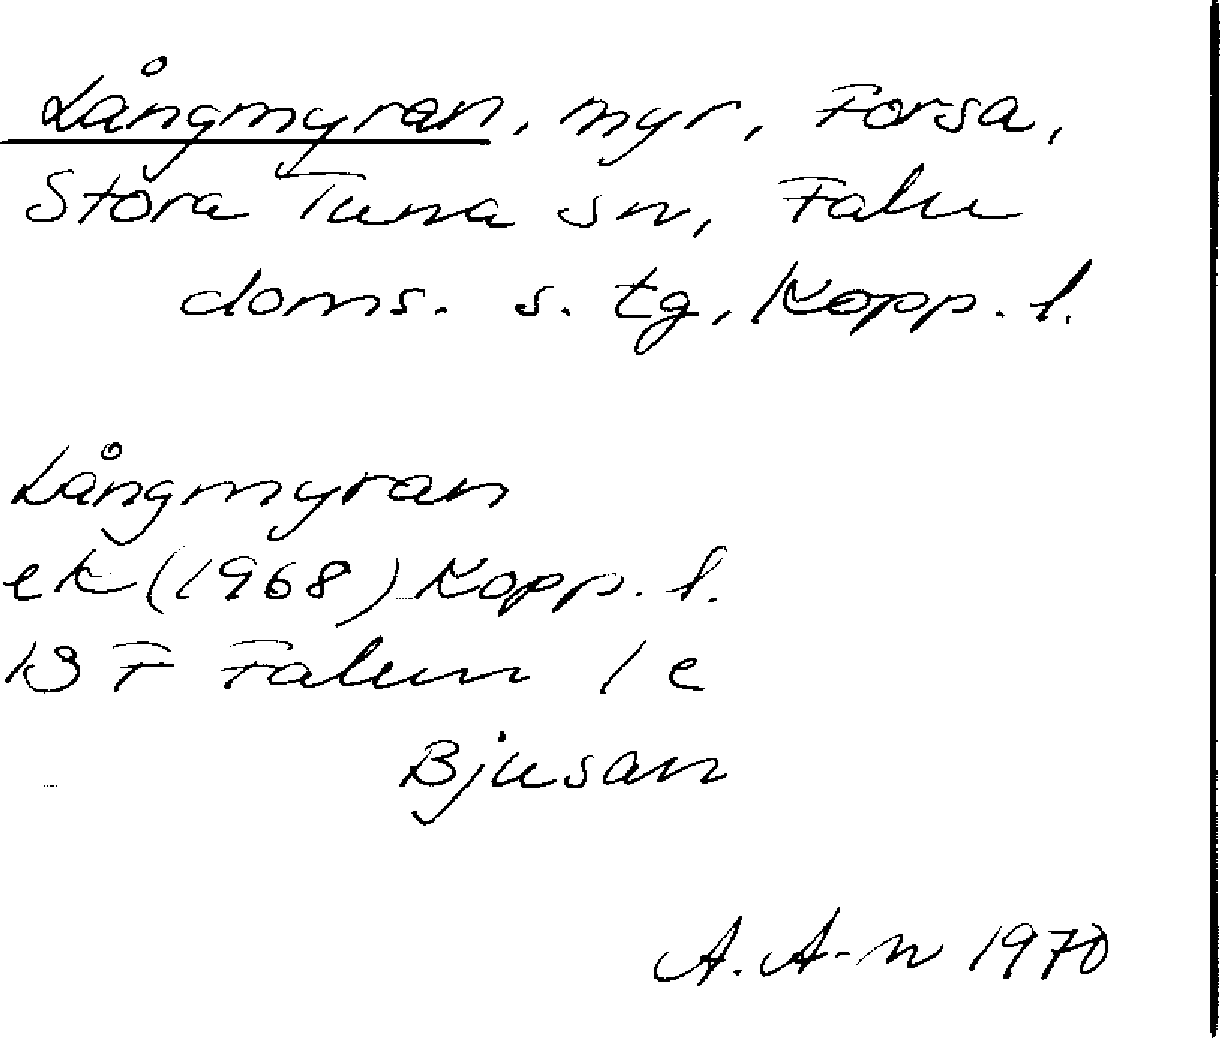 Långmyran, myr, Forsa,
Stora Tuna sn, Falu
doms. s. tg, Kopp. l.
Långmyran
ek (1968) Kopp. l.
13 F Falun 1 e
Bjusan
A. A-n 1970